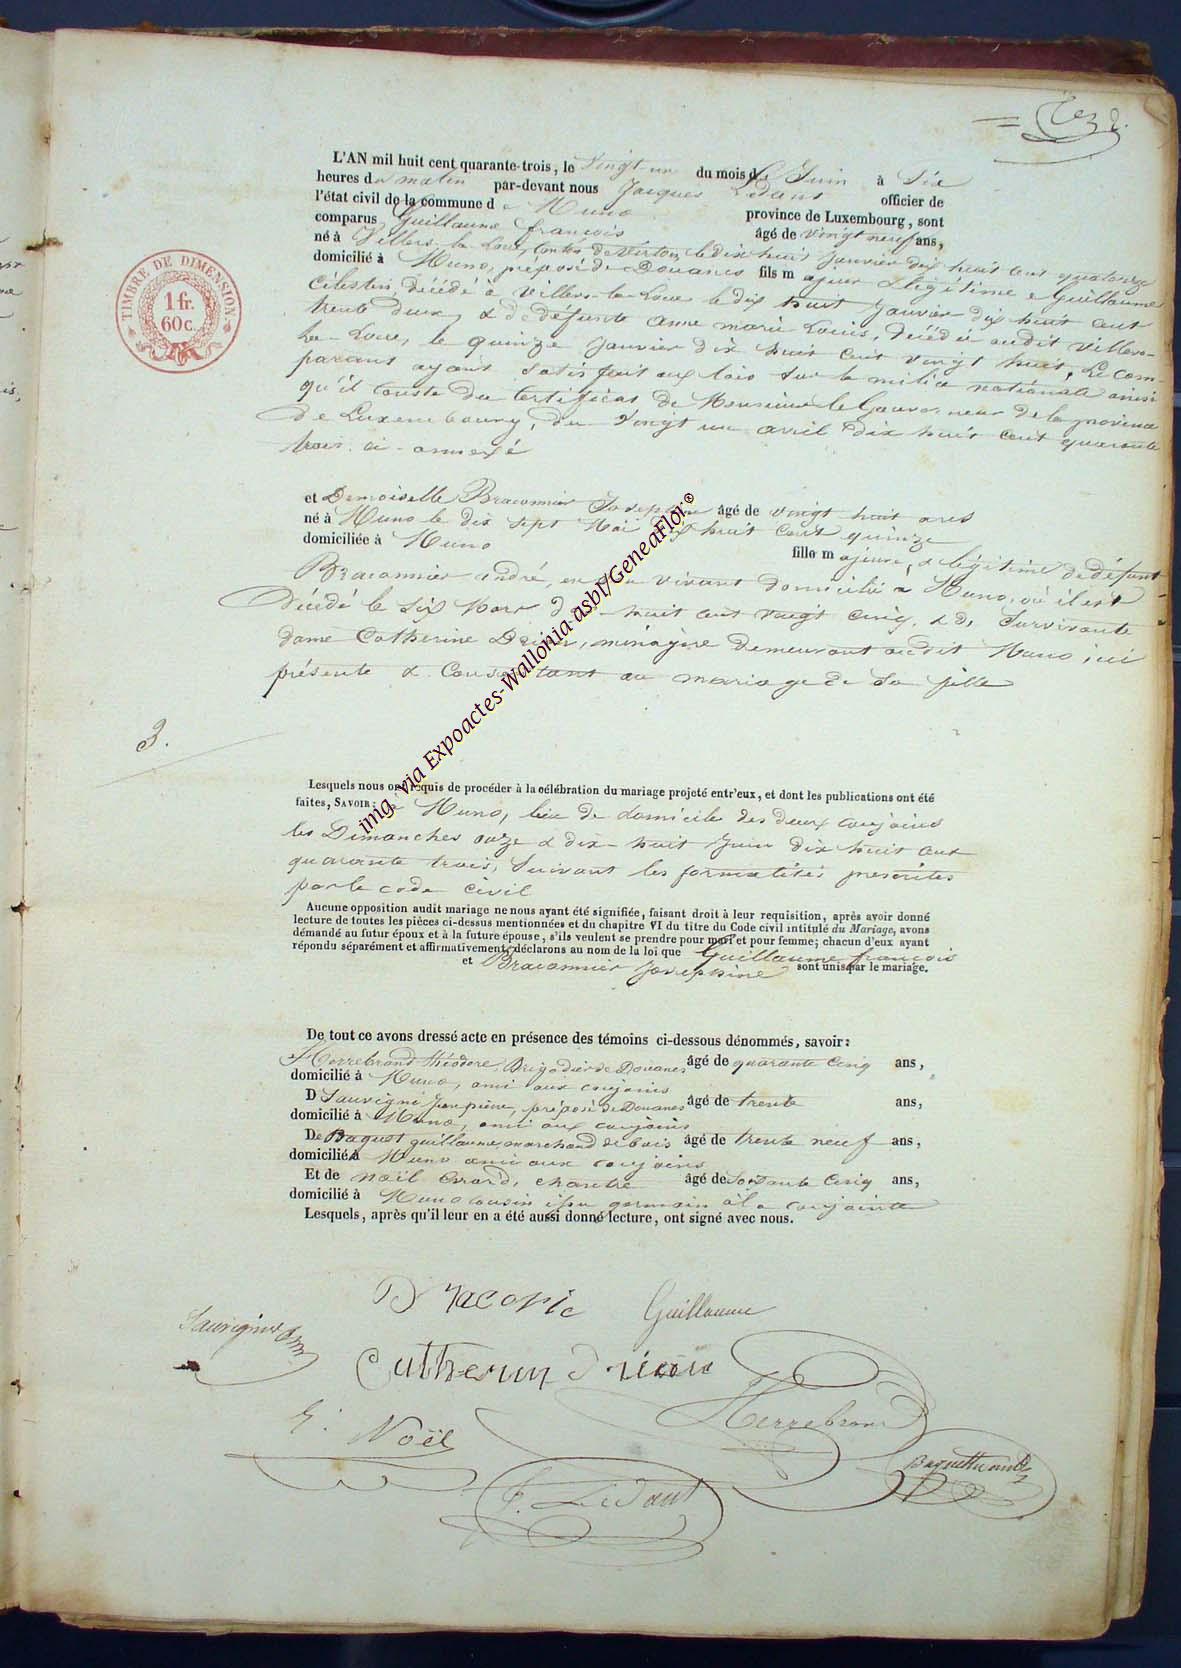 L'AN mil huit cent quarante-trois, le Vingt un du mois de Juin à Six
heures de matin par-devant nous Jacques Lédant officier de
l'état civil de la commune de Muno province de Luxembourg, sont
comparus Guillaume françois âgé de vingt neuf ans,
né à Villers-la-Loue, Canton de Virton, le dix huit Janvier dix huit cent quatorze
domicilié à Muno, préposé de Douanes fils majeur & légitime de Guillaume
Célestin, décédé à Villers-la-Loue le dix huit Janvier dix huit cent
trente deux, & de défunte anne marie Louis, décédée audit Villers-
La-Loue, le quinze Janvier dix huit cent vingt huit, Le com-
parant ayant satisfait aux lois sur la milice nationale ainsi
qu'il conste du certificat de Monsieur le Gouverneur de la province
de Luxembourg, du vingt un avril dix huit cent quarante
trois ci-annexé
et Demoiselle Braconnier Josephine âgé de vingt huit ans
né à Muno le dix sept Mai dix huit cent quinze
domiciliée à Muno fille majeure, & légitime de défunt
Braconnier André, en son vivant domicilié à Muno, où il est
Décédé le six Mars dix-huit cent vingt cinq, & de Survivante
dame Catherine, ménagère demeurant audit Muno, ici
présente & Consentant au mariage de Sa fille
3.
Lesquels nous ont requis de procéder à la célébration du mariage projeté entr'eux, et dont les publications ont été
faites, SAVOIR: à Muno, lieu de domicile des deux conjoins
les Dimanches onze & dix-huit Juin dix huit cent
quarante trois, Suivant les formalités prescrites
par le code civil
Aucune opposition audit mariage ne nous ayant été signifiée, faisant droit à leur requisition, après avoir donné
lecture de toutes les pièces ci-dessus mentionnées et du chapitre VI du titre du Code civil intitulé du Mariage, avons
démandé au futur époux et à la future épouse, s'ils veulent se prendre pour mari et pour femme; chacun d'eux ayant
répondu séparément et affirmativement, déclarons au nom de la loi que Guillaume françois
et Braconnier Josephine sont unis par le mariage.
De tout ce avons dressé acte en présence des témoins ci-dessous dénommés, savoir:
Herrebrand théodore, Brigadier de Douanes âgé de quarante Cinq ans,
domicilié à Muno, ami aux conjoins
D Sauvigni Jean pierre, préposé de Douanes âgé de trente ans,
domicilié à Muno, ami aux conjoins
De Baquet guillaume, marchand de bois âgé de trente neuf ans,
domicilié à Muno ami aux conjoins
Et de noël Evrard, chantre âgé de Soixante Cinq ans,
domicilié à Muno cousin issu germain à la conjointe
Lesquels, après qu'il leur en a été aussi donné lecture, ont signé avec nous.
Guillaume
Herrebrand
E. Noël
Lédant
TIMBRE DE DIMENSION
1 fr.
60 c.
img via Expoactes-Wallonia asbl/GeneaFloi®